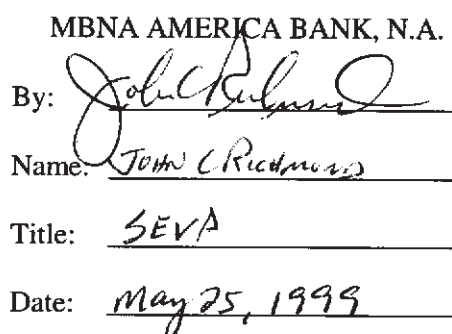 MBNA AMERICA BANK, N.A.
By: John C Richmond
Name: JOHN C RICHMOND
Title: SEVP
Date: May 25, 1999